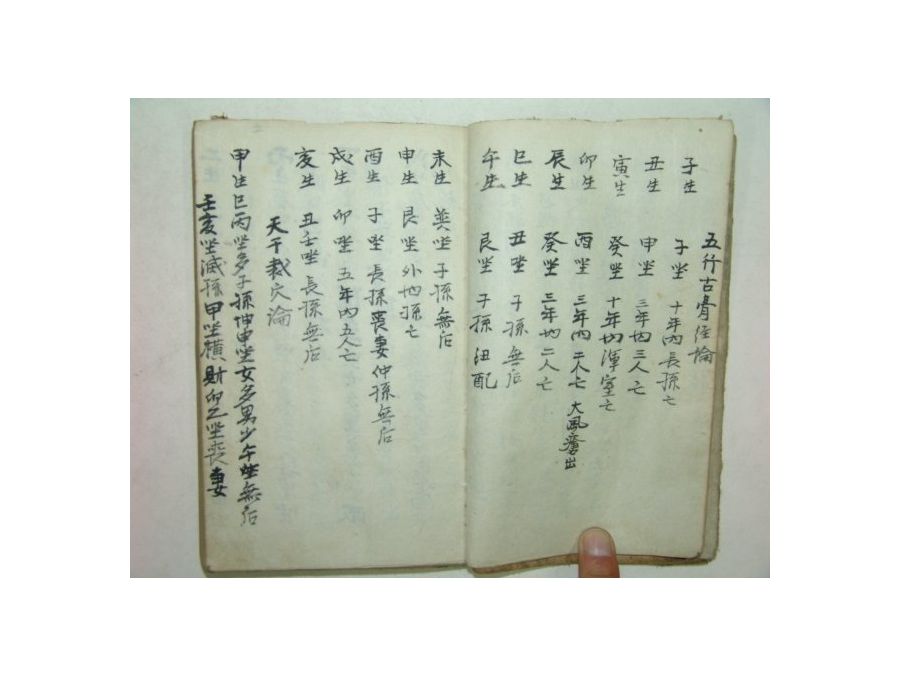 五行古骨經論
子生 子坐 十年內長孫亡
丑生 申坐 三年內三人亡
寅生 癸坐 十年內渾室亡
卯生 酉坐 三年內二人亡 大風瘡出
辰生 癸坐 三年內二人亡
巳生 丑坐 子孫無后
午生 艮坐 子孫 配
未生 坐 子孫無后
申生 艮坐 外內孫亡
酉生 子坐 長孫喪妻仲孫無后
戌生 卯坐 五年內五人亡
亥生 丑壬坐 長孫無后
天干裁穴論
甲生巳丙坐多子孫坤申坐女多男少午坐無后
壬亥坐滅孫甲坐橫財卯乙坐喪妻